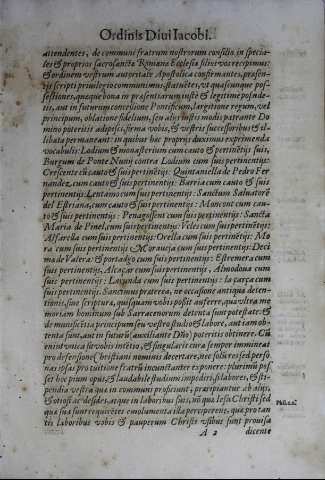 Ordinis Diui Iacobi.
attendentes, de communi fratrum nostrorum consilio in specia-
les & proprios sacrosanctæ Romanæ Ecclesiæ filios vos recipimus:
& ordinem vestrum autoritate Apostolica confirmantes, præsen-
tis scripti priuilegio communimus, statuētes, vt quascunque pos-
sessiones, quæque bona in præsentiarum iustè & legitimè posside-
tis, aut in futurum concessione Pontificum, largitione regum, vel
principum, oblatione fidelium, seu alijs iustis modis patrante Do
mino poteritis adipisci, firma vobis, & vestris successoribus & il-
libata permaneant: in quibus hæc proprijs duximus exprimenda
vocabulis: Lodium & monasterium cum cauto & pertinētijs suis,
Burgum de Ponte Nunij contra Lodium cum suis pertinentijs:
Crescente cū cauto & suis pertinētijs: Quintaniella de Pedro Fer-
nandez, cum cauto & suis pertinentijs: Barria cum cauto & suis
pertinentijs: Lentanos cum suis pertinentijs: Sanctum Saluatorē
del Estriana, cum cauto & suis pertinentijs: Moncont cum cau-
to & suis pertinentijs: Penagossent cum suis pertinentijs: Sancta
Maria de Pinel, cum suis pertinentijs: Vcles cum suis pertinētijs:
Alfarella cum suis pertinentijs: Orella cum suis pertinētijs: Mo
ra cum suis pertinentijs: Moranca cum suis pertinentijs: Deci
ma de Valera: & portadgo cum suis pertinentijs: Estremera cum
suis pertinentijs, Alcaçar cum suis pertinentijs, Almodoua cum
suis pertinentijs: Larunda cum suis pertinentijs: la çarça cum
suis pertinentijs. Sancimus præterea, ne occasione antiqua deten-
tionis, siue scriptura, quisquam vobis possit auferre, qua vltra me
moriam hominum sub Sarracenorum detenta sunt potestate: &
de munificētia principum seu vestro studio & labore, aut iam ob-
tenta sunt, aut in futurū (auxiliante Dño) poteritis obtinere. Cū
enim vna sit vobis intētio, & singularis cura semper immineat
pro defensione Christiani nominis decertare, nec solū res sed perso
nas ipsas pro tuitione fratrū incunctanter exponere: plurimū pos
set hoc pium opus, & laudabile studium impediri, si labores, & sti-
pendia vestra quæ in communi proficiunt, præripiantur ab alijs,
& otiosi ac desides, atque in laboribus suis, nō quæ Iesu Christi sed
quæ sua sunt requirētes emolumenta illa perciperent, quæ pro tan
tis laboribus vobis & pauperum Christi vsibus sunt prouisa
Phil. 2.
A 2 dicente